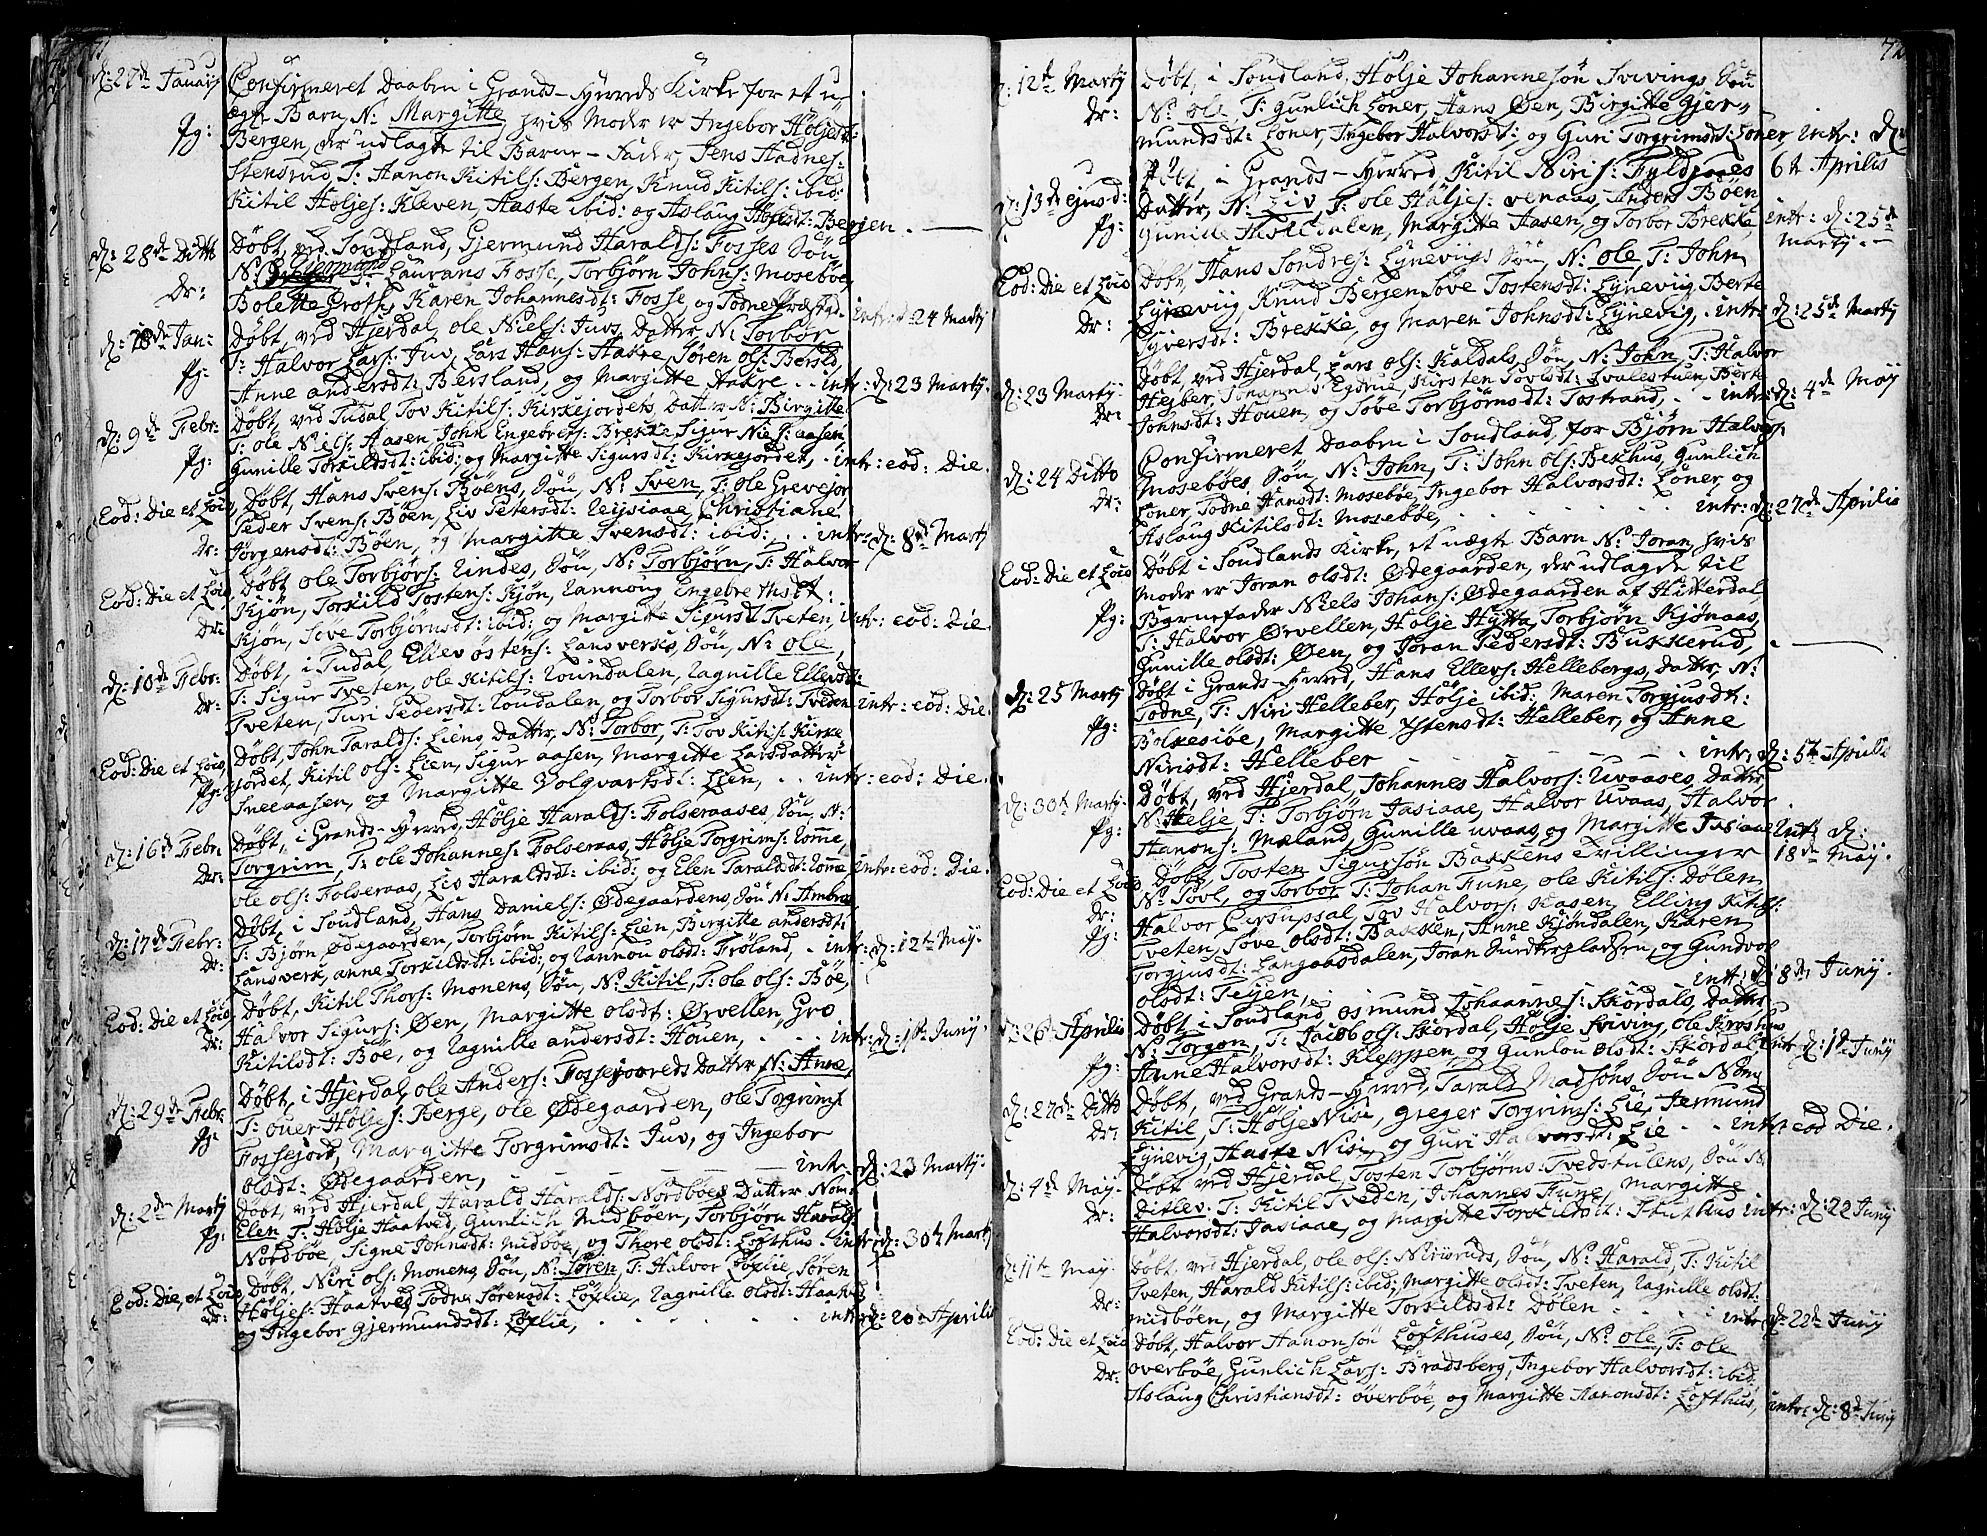 d: 27de Januarij Confirmeret Daaben i Grands-Herreds Kirke for et u-
pg: ægte Barn, N: Margitte, hvis Moder er Ingebor Höljesdt:
Bergen, der udlagte til Barne-Fader, Jens Hadnes:
Stensrud, T: Hanon Kitils: Bergen, Knud Kitils: ibid:
Kitil Höljes: Kleven, Aaste ibid: og Aslaug Höljesdt: Bergen. -
d: 28de Ditto Döbt, ved Soudland, Gjermund Haralds: Fosses Sön
dr: N: Gjermund T: Laurans Fosse, Torbjørn Johns: Moseböe,
Bolette Groth, Karen Johannesdt: Fosse, og Todne intr: d 24 Martij
d: Jan: Döbt, ved Hjerdal, ole Niels: Juvs, Datter, N: Torbor
pg: T: Halvor Lars: Juv, Lars Hans: Haкre, Søren ols: Bersld,
Anne andersdt: Bersland, og Margitte Haкre .. intr: d: 23 Martij.
d: 9de Febr: Döbt, ved Tudal, Tov Kitils: Kirkejordets, Datter N: Birgitte
pg: T: ole Niels: Aasen, John Engebrets: Brekke, Sigur Niels: aasen,
Gunille Torkildsdt: ibid: og Margitte Sigursdt: Kirkejordet, . intr: eod: Die.
Eod: Die et Loco, Döbt, Hans Svens: Böens, Sön, N: Sven, T: ole Grevejor
Peder Svens: Böen, Liv Petersdt: Christiane
dr: Jörgensdt: Böen, og Margitte Svensdt: ibid: .. intr: d: 8de Martij
Eod: Die et Loco, Döbt ole Torbjörs: Lindes, Sön, N: Torbjørn, T: Halvor
Kjön, Torkild Tostens: Kjön, Rannoug Engebrethsdt:
dr: Kjön, Söve Torbjørnsdt: ibid: og Margitte Sigursdt Tveten, intr: eod: Die.
d: 10de Febr: Döbt, i Tudal, Ellev östens: Lansverks, Sön, N: ole,
dr: T: Sigur Tveten, ole Kitils: Roindalen, Ragnille Ellevsdt:
Tveten, Turi Pedersdt: Roudalen, og Torbor Sigursdt: Tveden intr: eod: Die.
Eod: Die et Loco, Döbt, John Taralds: Liens, Datter, N: Torbor, T: Tov Kitils: Kirke
pg: jordet, Kitil ols: Lien, Sigur aasen, Margitte Larsdatter
Sneeaasen, og Margitte Volqvartsdt: Lien, .. intr: eod: Die.
d: 16de Febr: Döbt, i Grands-Herred, Hölje Haralds: Folseraases, Sön, N:
dr: Torgrim, T: ole Johannes: Folseraas, Hölje Torgrims: Romme,
ole ols: Folseraas, Liv Haraldsdt: ibid: og Elen Taraldsdt: Romme, intr: eod: Die.
d: 17de Febr: Döbt, i Soudland, Hans Daniels: Ødegaardens, Sön N: Ambros
dr: T: Bjørn Ødegaarden, Torbjørn Kitils: Lien, Birgitte andersdt:
Lansverk, anne Torkildsdt: ibid: og Rannou olsdt: Fröland, . intr: d: 12te Maij.
Eod: Die et Loco, Döbt, Kitil Thors: Monens, Sön, N: Kitil, T: ole ols: Böe,
dr: Halvor Sigurs: Øen, Margitte olsdt: Ørvellen, Gro
Kitilsdt: Böe, og Ragnille andersdt: Houen, . . . intr: d: 1ste Junij.
d: 29de Febr: Döbt, i Hjerdal, ole Anders: Fossejoreds Datter N: Anne,
pg: T: över Höljes: Berge, ole Ødegaarden, ole Torgrims:
Fossejord, Margitte Torgrimsdt: Juv, og Ingebor
olsdt: Ødegaarden, - - - - intr: d: 23 Martij.
d: 2den Martij Döbt, ved Hjerdal, Harald Haralds: Nordböes Datter Nom:
pg: Elen T: Hölje Haatved, Gunlich Midböen, Torbjørn Haralds:
Nordböe, Signe Johnsdt: Midböe, og Thore olsdt: Lofthus . intr: d: 30te Martij
Eod: Die, et Loco Döbt, Niri ols: Monens, Sön, N: Sören, T: Halvor Löxlie, Sören
dr: Höljes: Haatved, Todne Sörensdt: Löxlie, Ragnille olsdt: Haatved,
og Ingebor Gjermundsdt: Löxlie, . . . . intr: d: 20de Aprilis
72
d: 12te Martij Döbt, i Soudland, Hölje Johannesön Svivings, Sön
dr: N: ole, T: Gunlich Loner, Hans Øen, Birgitte Gjer-
mundsdt: Loner, Ingebor Halvorsdt: og Guri Torgrimsdt: Loner, intr: d:
6te Aprilis
d: 13de ejusd: Döbt, i Grands-Herred, Kitil Niris:
pg: Datter, N: Liv, T: ole Höljes: venaas, Anders Böen
Gunille Margitte Aasen, og Torbor Brekke, intr: d: 25de
Martij. -
Eod: Die et Loco Döbt, Hans Sondres: Lynevijgs Sön, N: ole, T: John
dr: Lynevijg, Knud Bergen, Söve Tostensdt: Lynevijg Berte
Syversdt: Brekke, og Maren Johnsdt: Lynevig, . intr: d: 25de Martij
d: 23 Martij. Döbt, ved Hjerdal, Lars ols: Kaldals, Sön, N: John, T: Halvor
dr: Heyber, Johannes Egerue, Kirsten Tovlsdt: Svalestuen, Berte
Johnsdt: Houen, og Söve Torbjørnsdt: Tostrand, . . intr: d: 4de Maij
d: 24 Ditto Confirmeret, Daaben i Soudland, for Bjørn Halvors:
dr: Moseböes, Sön, N: John, T: John ols: Bekhus, Gunlich
Loner, Todne Hansdt: Moseböe, Ingebor Halvorsdt: Loner, og
Aslaug Kitilsdt: Moseböe, . . . . . intr: d: 27de Aprilis
Eod: Die et Loco Döbt i Soudlands Kirke, et uægte Barn N: Joran, hvis
pg: Moder er Joran olsdt: Ødegaarden, der udlagde til
Barnefader Niels Johans: Ødegaarden af Hitterdal,
T: Halvor Ørvellen, Hölje Hytta, Torbjørn Kjönaas,
Gunille olsdt: Øen, og Joran Pedersdt: Bukkerud, . -
d: 25 Martij Döbt i Grands-Herred, Hans Ellevs: Hellebergs, Datter, N:
pg: Todne, T: Niri Helleber, Hölje ibid: Maren Torgjusdt:
Bolkesiöe, Margitte Ystensdt: Helleber, og Anne
Nirisdt: Helleber - - - - . intr: d: 5te Aprilis
d: 30te Martij. Döbt, ved Hjerdal, Johannes Halvors: Uvaases, Datter,
pg: N: Helje T: Torbjørn Jasiaae, Halvor Uvaas, Halvor
Hanons: Mæland, Gunille uvaas, og Margitte Jasiaae intr: d:
18de Maij.
Eod: Die et Loco, Döbt, Tosten Sigursön Bakkens Tvillinger
dr: N: Tovl, og Torbor, T: Johan Fune, ole Kitils: Dölen
pg: Halvor Tov Halvors: Aasen, Elling Kitils:
Tveten, Söve olsdt: Bakken, Anne Kjöndalen, Karen
Torgjusdt: Langaasdalen, Joran og Gundvor
olsdt: Teigen, . . . . intr: d: 8de Junij.
d: 26de Aprilis Döbt, i Soudland, Osmund Johannes: Skördals, Datter
pg: N: Torgon, T: Jacob ols: Skordal, Hölje Sviving, ole Kroshus
Anne Halvorsdt: Kleppen, og Gunlou olsdt: Skördal, intr d: 1ste Junij
d: 27de Ditto Döbt, ved Grands-Herred, Tarald Madsöns, Sön Nom:
dr: Kitil, T: Hölje Nisi, Greger Torgrims: Lie, Jermund
Lynevig, Haste Nisi, og Guri Halvorsdt: Lie . . intr: eod Die.
d: 4de Maij. Döbt ved Hjerdal, Tosten Torbjørns: Tvedstulens, Sön N:
dr: Ditlev. T: Kitil Tveden, Johannes Fune, Margitte
Halvorsdt: Jasiaae, og Margitte Torkildsdt: intr: d: 22 Junij
d: 11te Maij. Döbt, ved Hjerdal, ole ols: Nirisruds, Sön, N: Harald, T: Kitil
dr: Tveten, Harald Kitils: ibid: Margitte olsdt: Tveten, Ragnille olsdt:
Midböen, og Margitte Torkildsdt: Dölen . . . . intr: d: 22de Junij
Eod: Die et Loco Döbt, Halvor Hanonsön Lofthuses, Sön, N: ole, T: ole
dr: overböe, Gunlich Lars: Bradsberg, Ingebor Halvorsdt: ibid:
Aslaug Christiensdt: överböe, og Margitte Hanonsdt: Lofthus, intr: d: 8de Junij